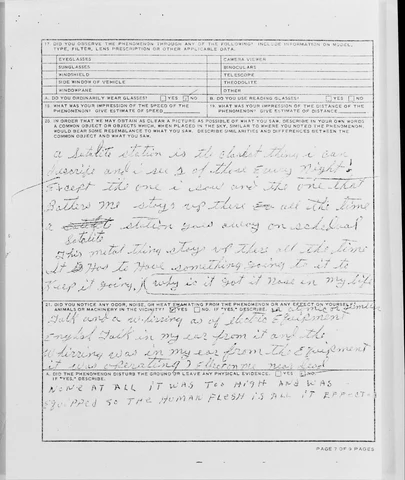 17. DID YOU OBSERVE THE PHENOMENON THROUGH ANY OF THE FOLLOWING? INCLUDE INFORMATION ON MODEL,
TYPE, FILTER, LENS PRESCRIPTION OR OTHER APPLICABLE DATA.
EYEGLASSES CAMERA VIEWER
SUNGLASSES BINOCULARS
WINDSHIELD TELESCOPE
SIDE WINDOW OF VEHICLE THEODOLITE
WINDOWPANE OTHER
A. DO YOU ORDINARILY WEAR GLASSES? YES NO B. DO YOU USE READING GLASSES? YES NO
18. WHAT WAS YOUR IMPRESSION OF THE SPEED OF THE
PHENOMENON? GIVE ESTIMATE OF SPEED
19. WHAT WAS YOUR IMPRESSION OF THE DISTANCE OF THE
PHENOMENON? GIVE ESTIMATE OF DISTANCE
20. IN ORDER THAT WE MAY OBTAIN AS CLEAR A PICTURE AS POSSIBLE OF WHAT YOU SAW, DESCRIBE IN YOUR OWN WORDS
A COMMON OBJECT OR OBJECTS WHICH, WHEN PLACED IN THE SKY, SIMILAR TO WHERE YOU NOTED THE PHENOMENON,
WOULD BEAR SOME RESEMBLANCE TO WHAT YOU SAW. DESCRIBE SIMILARITIES AND DIFFERENCES BETWEEN THE
COMMON OBJECT AND WHAT YOU SAW.
a station is the thing i can
and i see 2 of these Every Night
Except the one i saw and the one that
me stays up there all the time
station goes away on
Satalite
This metal thing stays up there all the time
it Has to Have something going to it to
Keep it going, why is it Got it Nose in my life
21. DID YOU NOTICE ANY ODOR, NOISE, OR HEAT EMANATING FROM THE PHENOMENON OR ANY EFFECT ON YOURSELF,
ANIMALS OR MACHINERY IN THE VICINITY? YES NO. IF "YES", DESCRIBE.
Talk and a whirring as of Equipment
English Talk in my ear from it and the
Whirring was in my ear from the Equipment
it was operating?
A. DID THE PHENOMENON DISTURB THE GROUND OR LEAVE ANY PHYSICAL EVIDENCE. YES NO
IF "YES", DESCRIBE.
NONE AT ALL IT WAS TOO HIGH AND WAS
EQUIPPED SO THE HUMAN FLESH IS ALL IT
PAGE 7 OF 9 PAGES